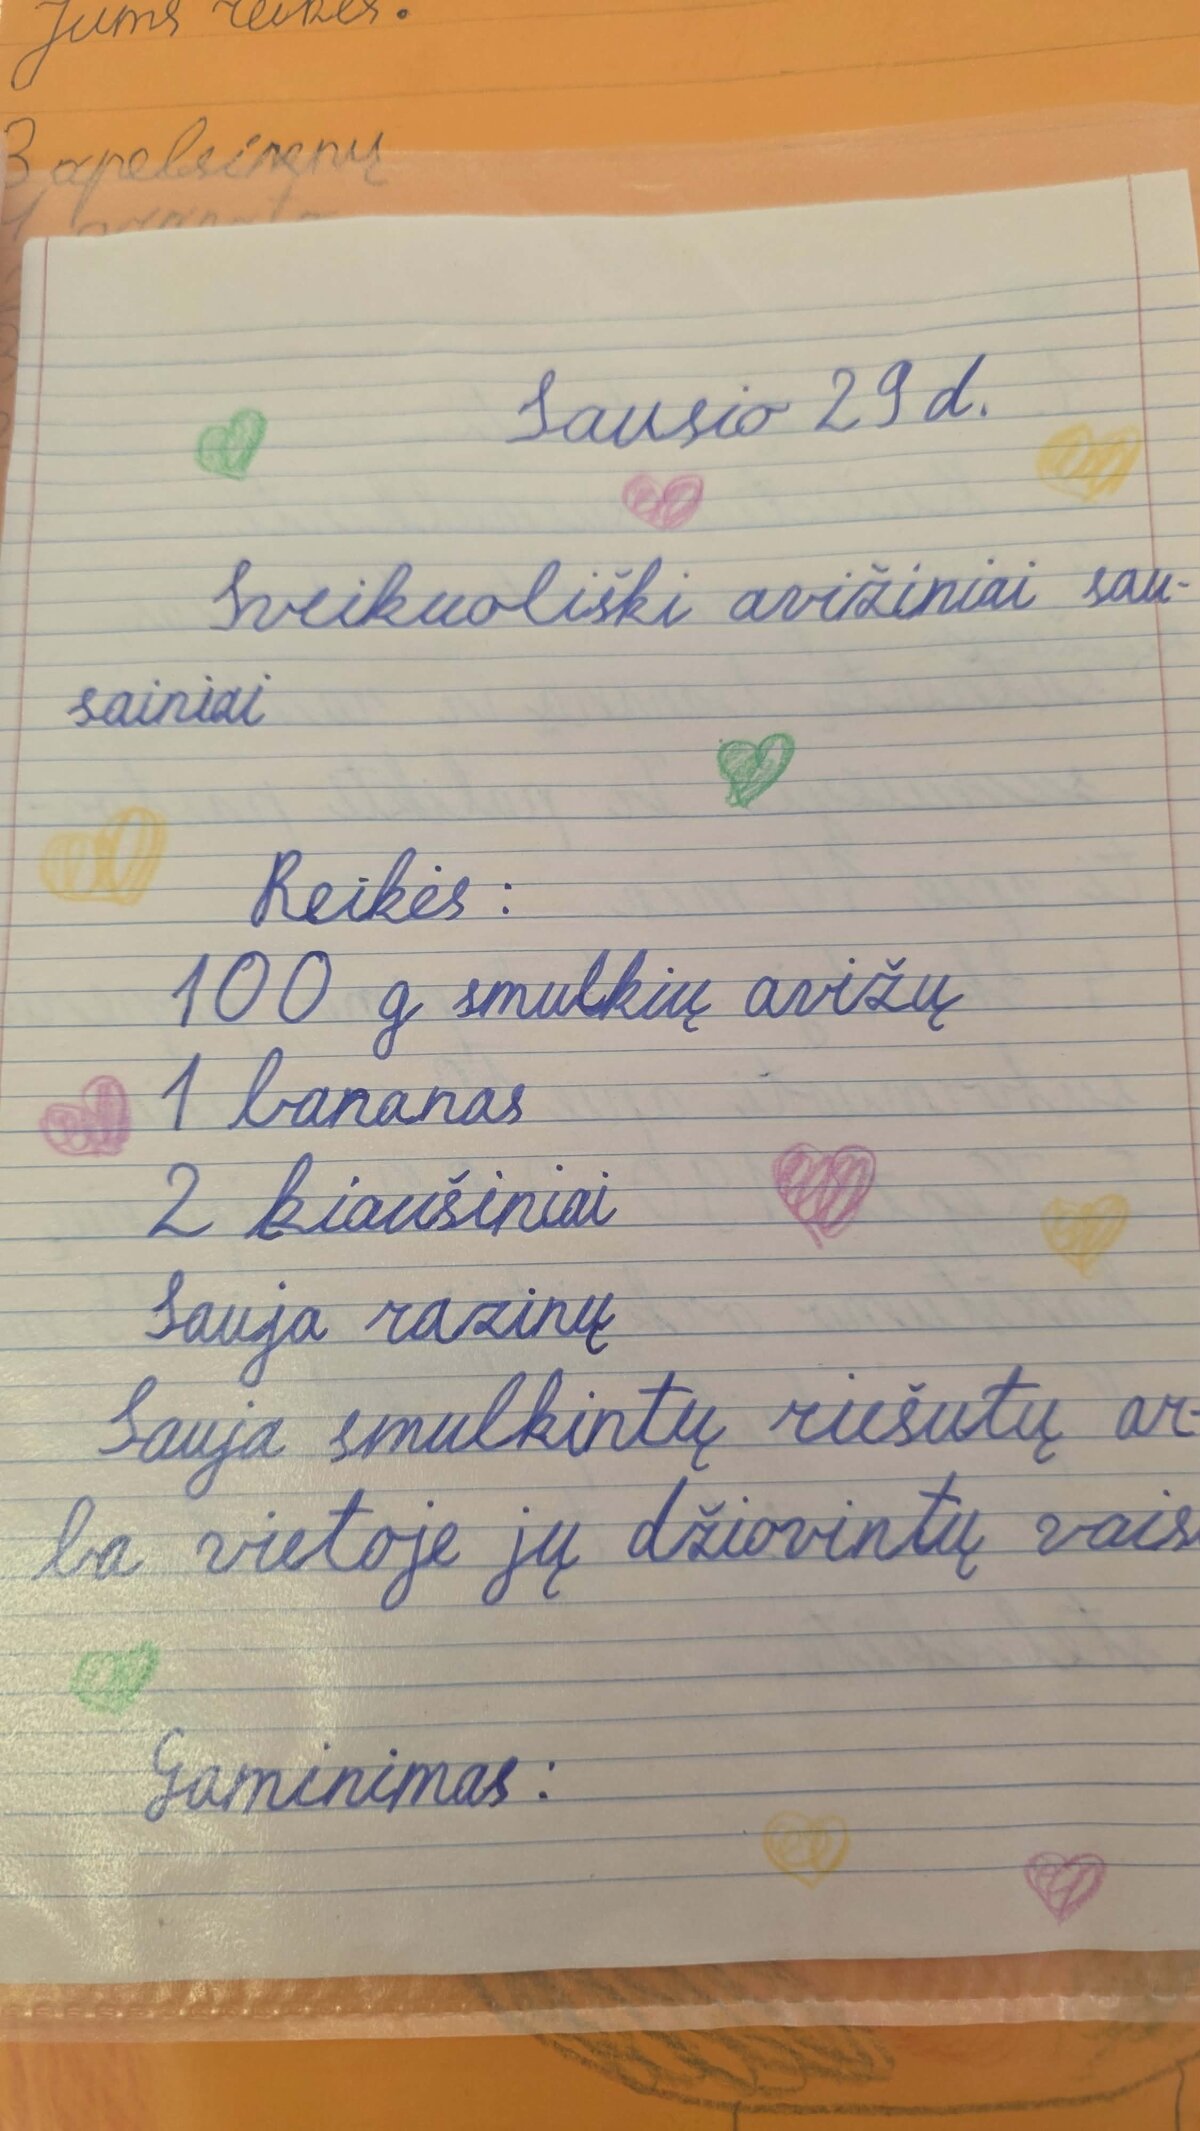 Jums reikės:
3 apelsinų
Sausio 29 d.
Sveikuoliški avižiniai sau-
sainiai
Reikės:
100 g smulkių avižų
1 bananas
2 kiaušiniai
Sauja razinų
Sauja smulkintų riešutų ar-
ba vietoje jų džiovintų vais
Gaminimas: